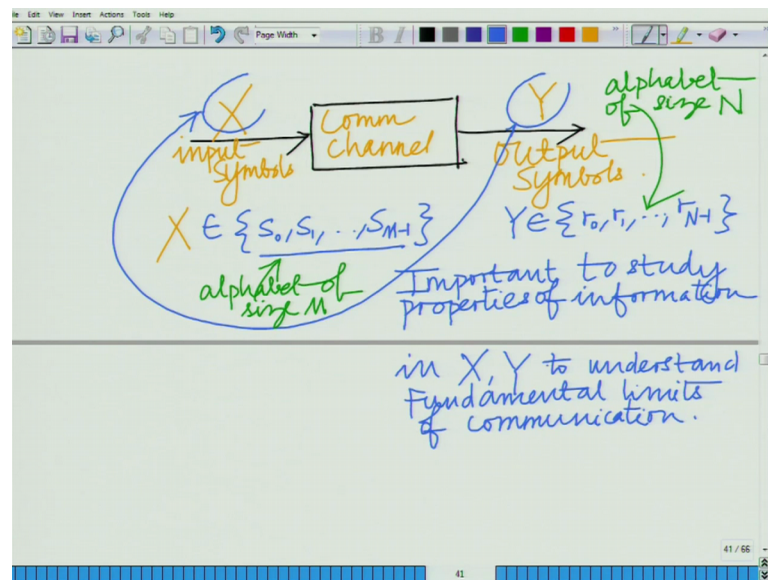 File Edit View Insert Actions Tools Help
Page Width
B I
X
Comm
Channel
Y
alphabet
of size N
input
symbols
output
symbols.
X ∈ {S₀, S₁, .., S_M-1}
Y ∈ {r₀, r₁, .., r_N-1}
alphabet of
size M
Important to study
properties of information
in X, Y to understand
Fundamental limits
of communication.
41 / 66
41